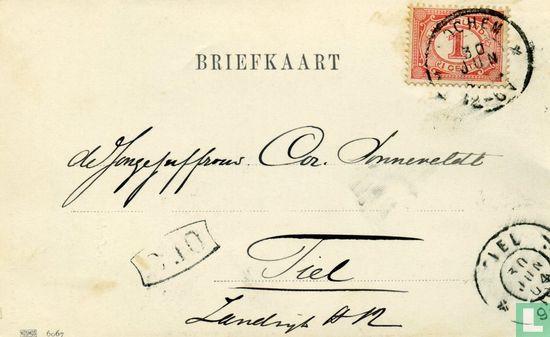 BRIEFKAART
1
CHEM
30
JUN
12-6
de Jongejuffrouw Cor. Sonneveldt
Tiel
Zandwijk
TIEL
30
JUN
04
6067